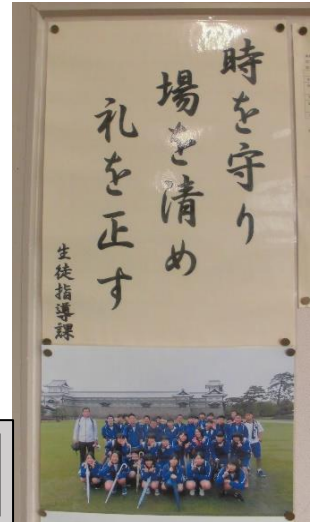 時を守り
場を清め
礼を正す
生徒指導課